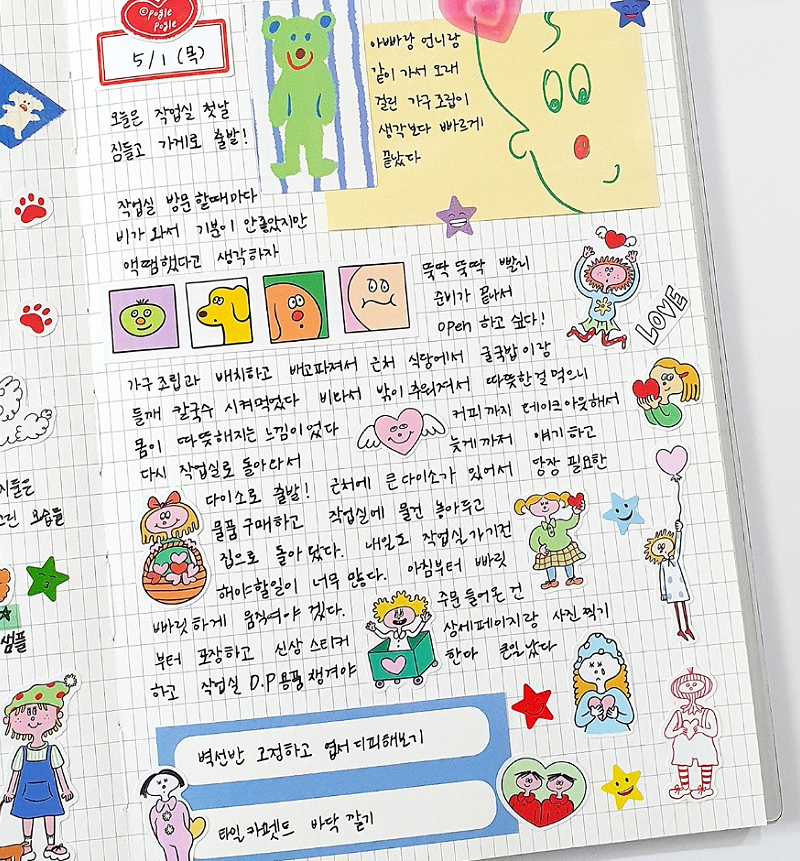 ©Pogle
Pogle
5/1 (목)
오늘은 작업실 첫날
짐들고 가게로 출발!
아빠랑 언니랑
같이 가서 오래
걸린 가구조립이
생각보다 빠르게
끝났다
작업실 방문 할때마다
비가 와서 기분이 안좋았지만
액땜했다고 생각하자
뚝딱 뚝딱 빨리
준비가 끝나서
open 하고 싶다!
LOVE
가구조립과 배치하고 배고파져서 근처 식당에서 굴국밥이랑
들깨 칼국수 시켜먹었다 비와서 밖이 추워져서 따뜻한걸 먹으니
몸이 따뜻해지는 느낌이었다 커피까지 테이크아웃해서
다시 작업실로 돌아와서 늦게까지 얘기하고
다이소로 출발! 근처에 큰다이소가 있어서 당장 필요한
물품구매하고 작업실에 물건 놓아두고
집으로 돌아왔다. 내일도 작업실가기전
해야할일이 너무 많다. 아침부터 빠릿
빠릿하게 움직여야 겠다. 주문 들어온 건
부터 포장하고 신상 스티커 상세페이지랑 사진찍기
하고 작업실 D.P용품 챙겨야 한다 큰일났다
벽선반 고정하고 엽서 디피해보기
타일카펫트 바닥 깔기
샘플